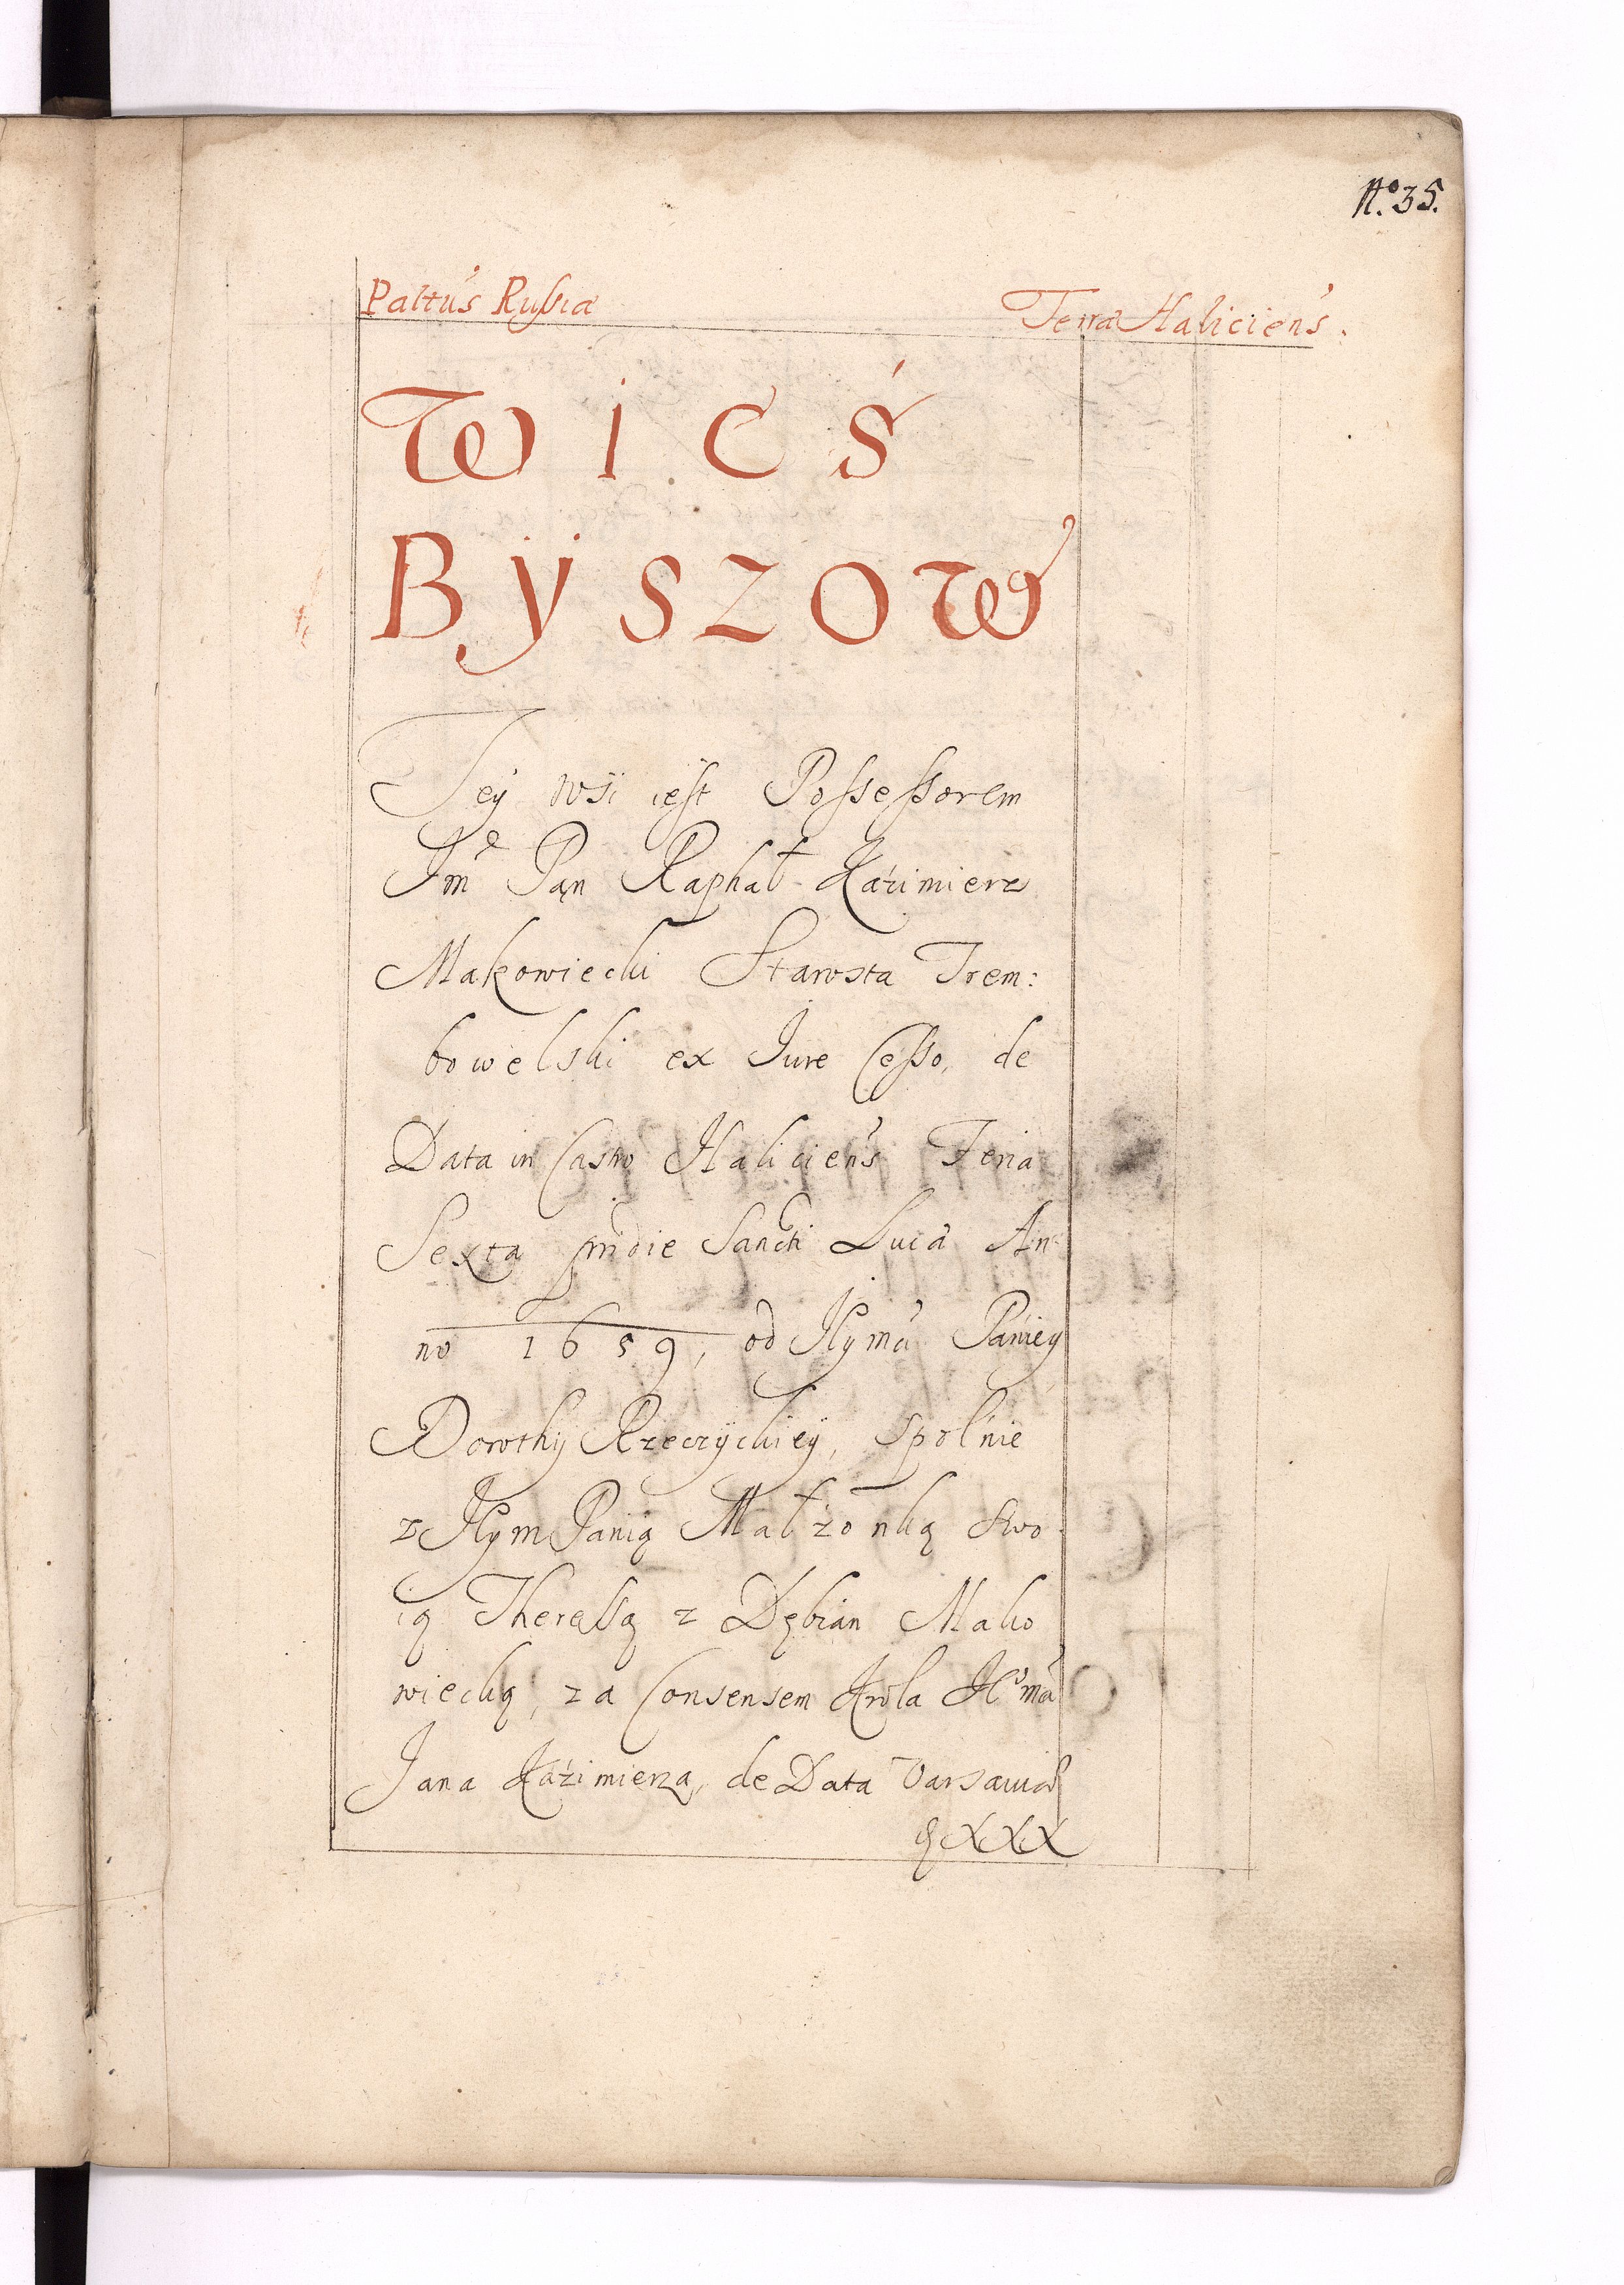 No. 35.
Paltus Russiæ Terræ Haliciens.
WIEŚ
BÿSZOW
Tey wsi iest Possessorem
Jmę Pąn Raphał Kaźimierz
Makowiecki Starosta Trem:
bowelski ex Jure Cesso, de
Data in Castro Haliciens Feria
Sexta pridie Sancti Lucæ An
no 1659, od Jeymći Pańiey
Dorothy Rzeczyckiey, spolńie
z Jeym Panią Małżonką Swo
ią Theressą z Dębian Mako
wiecką, za Consensem Króla Jeomći
Jana Kaźimierza, de Data Varsaviæ